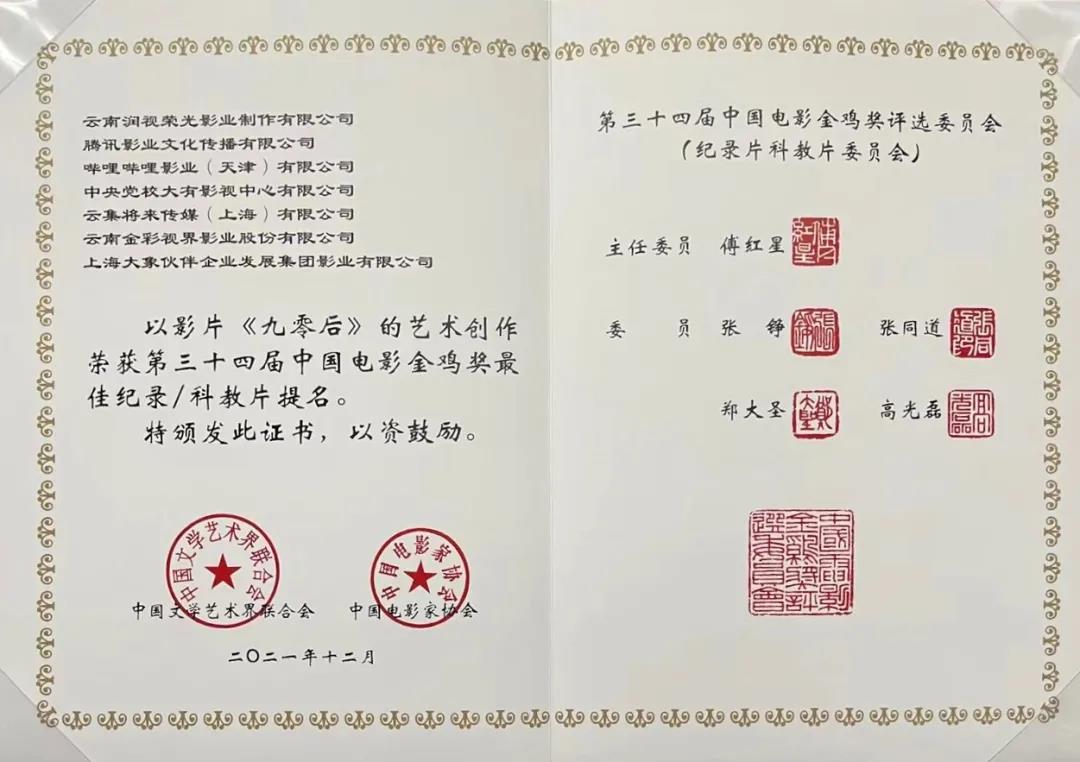 云南润视荣光影业制作有限公司
腾讯影业文化传播有限公司
哔哩哔哩影业（天津）有限公司
中央党校大有影视中心有限公司
云集将来传媒（上海）有限公司
云南金彩视界影业股份有限公司
上海大象伙伴企业发展集团影业有限公司
以影片《九零后》的艺术创作
荣获第三十四届中国电影金鸡奖最
佳纪录/科教片提名。
特颁发此证书，以资鼓励。
中国文学艺术界联合会
中国电影家协会
中国文学艺术界联合会 中国电影家协会
二〇二一年十二月
第三十四届中国电影金鸡奖评选委员会
（纪录片科教片委员会）
主任委员 傅红星
委 员 张 铮 张同道
郑大圣 高光磊
中國電影
金鷄獎評
選委員會